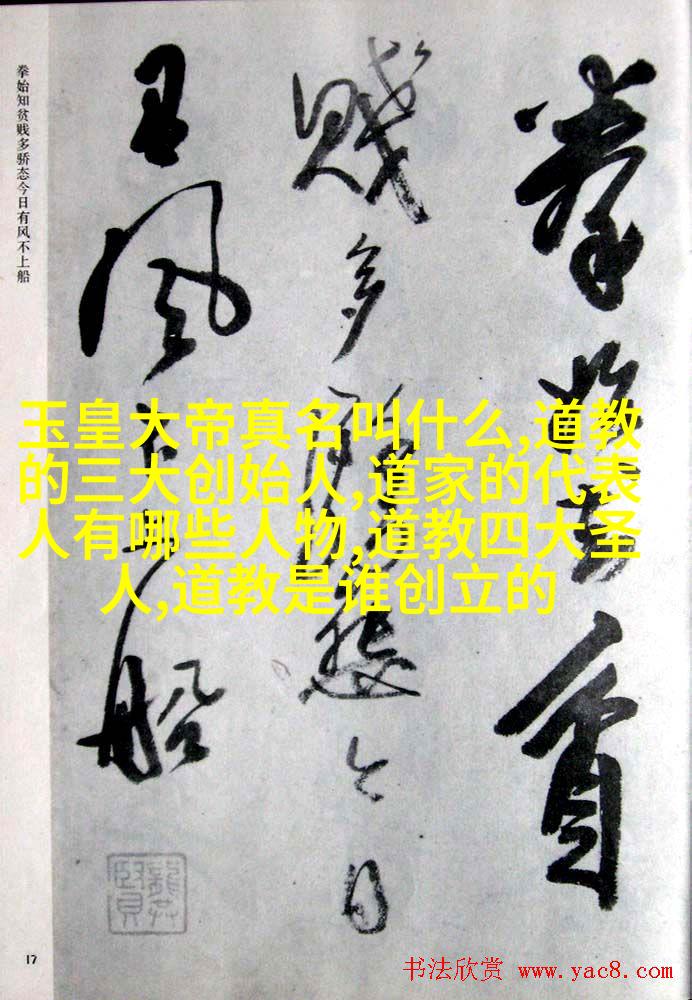 拳始知貧
賤多驕態今日
有風不上船
拳始知贫贱多骄态今日有风不上船
玉皇大帝真名叫什么,道教
的三大创始人,道家的代表
人有哪些人物,道教四大圣
人,道教是谁创立的
17
书法欣赏 www.yac8.com